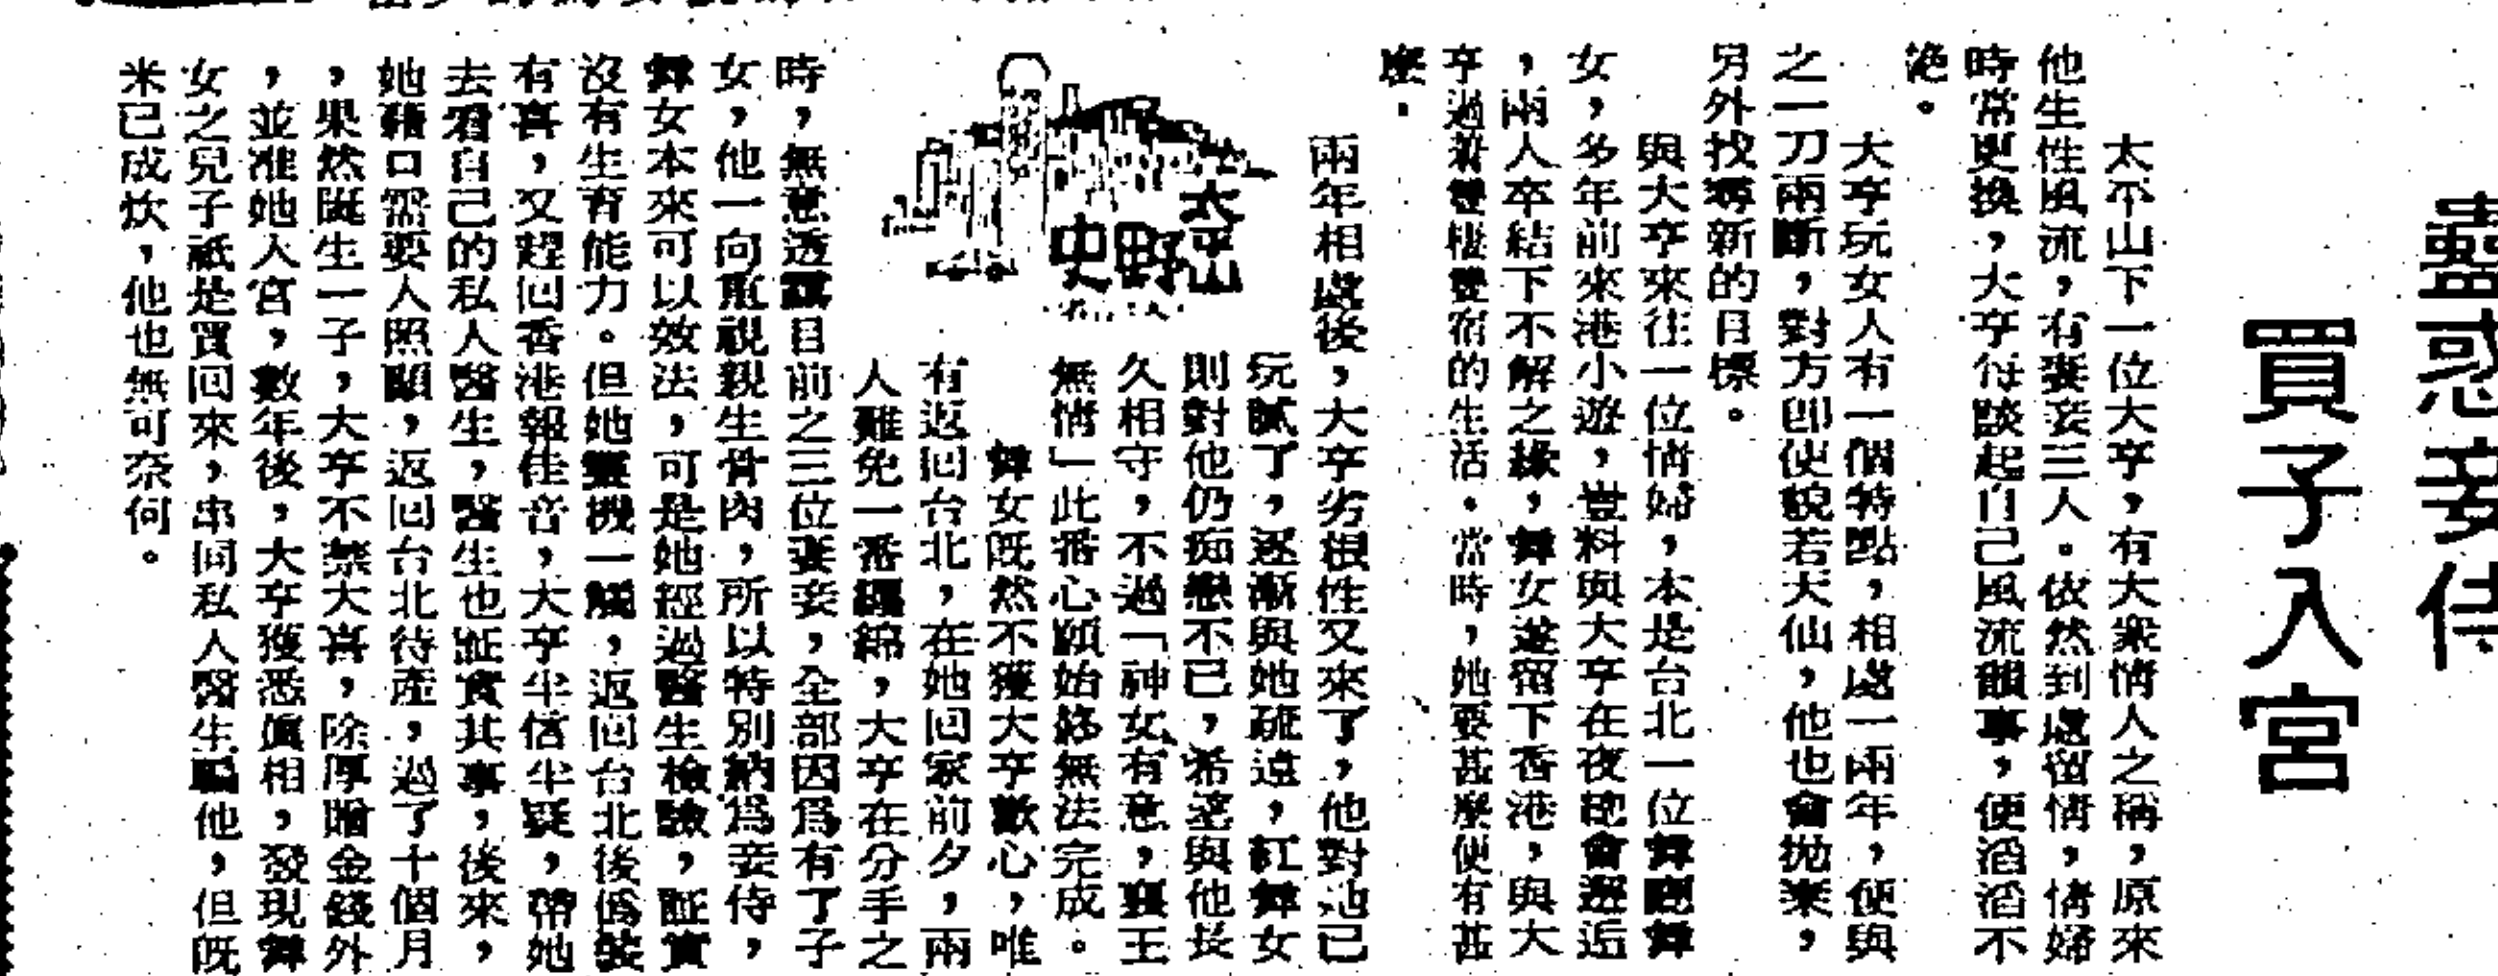 蠱惑妾侍
買子入宮
太平山下一位大亨，有大衆情人之稱，原來
他生性風流，有妻妾三人。依然到處留情，情婦
時常更換，大亨每談起自己風流韻事，便滔滔不
絕。
大亨玩女人有一個特點，相處一兩年，便與
之一刀兩斷，對方卽使貌若天仙，他也會拋棄，
另外找尋新的目標。
與大亨來往一位情婦，本是台北一位舞廳舞
女，多年前來港小遊，豈料與大亨在夜總會邂逅
，兩人卒結下不解之緣，舞女遂留下香港，與大
亨過着雙棲雙宿的生活。當時，她要甚麼便有甚
麼.
兩年相處後，大亨劣根性又來了，他對她已
玩膩了，逐漸與她疏遠，紅舞女
則對他仍痴戀不已，希望與他長
久相守，不過「神女有意，襄王
無情」此番心願始終無法完成。
太平山
野史
舞女既然不獲大亨歡心，唯
有返回台北，在她回家前夕，兩
人難免一番纏綿，大亨在分手之
時，無意透露目前之三位妻妾，全部因爲有了子
女，他一向重視親生骨肉，所以特別納爲妾侍，
舞女本來可以效法，可是她經過醫生檢驗，証實
沒有生育能力。但她靈機一觸，返回台北後僞裝
有喜，又趕回香港報佳音，大亨半信半疑，帶她
去看自己的私人醫生，醫生也証實其事，後來，
她藉口需要人照顧，返回台北待產，過了十個月
，果然誕生一子，大亨不禁大喜，除厚贈金錢外
，並准她入宮，數年後，大亨獲悉眞相，發現舞
女之兒子祇是買回來，串同私人醫生騙他，但既
米已成炊，他也無可奈何。